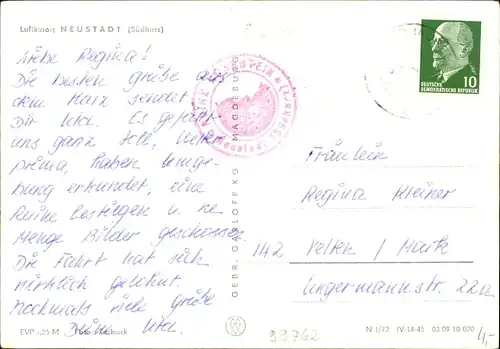 Luftkurort NEUSTADT (Südharz)
Liebe Regina!
Die besten Grüße aus
dem Harz sendet
Dir Uta. Es gefällt
uns ganz toll, Wetter
prima, haben Umge-
bung erkundet, eine
Ruine bestiegen u. ne
Menge Bilder geschossen.
Die Fahrt hat sich
wirklich gelohnt.
Nochmals viele Grüße
Deine Uta.
EVP -.25 M
GEBR. GARLOFF KG MAGDEBURG
10
DEUTSCHE
DEMOKRATISCHE REPUBLIK
Fräulein
Regina Kleiner
142 Velten / Mark
Ungermannstr. 22a
N 1/72 IV-14-45 03 09 10 020
99762
4,-